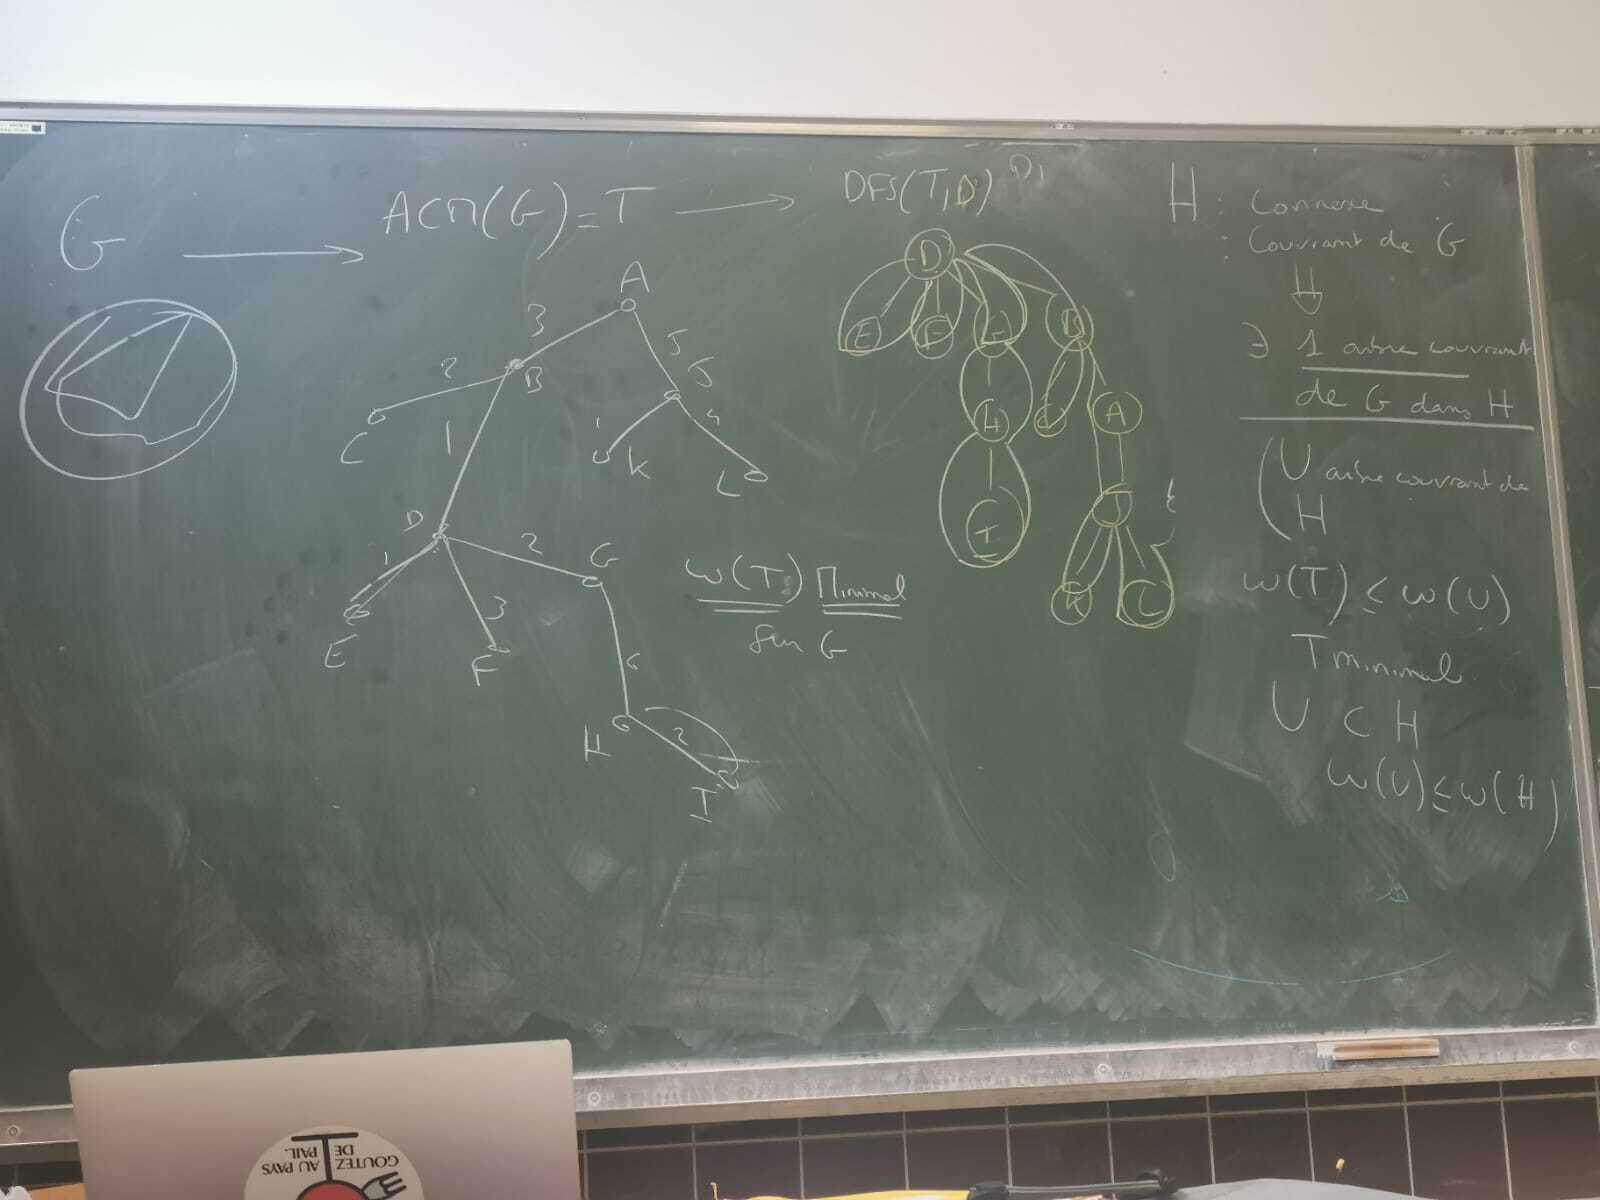 G
ACM(G) = T
DFS(T,D)
A
3
5
B
J
2
C
1
1
K
4
L
D
1
2
3
G
E
F
6
H
2
I
w(T) Minimal
sur G
D
E
F
G
B
H
C
A
I
J
K
L
H : Connexe
: Couvrant de G
⇓
∃ 1 arbre couvrant
de G dans H
(U arbre couvrant de
H
w(T) ≤ w(U)
T minimal
U ⊂ H
w(U) ≤ w(H))
GOUTEZ
DE
PAIL.
AU PAYS